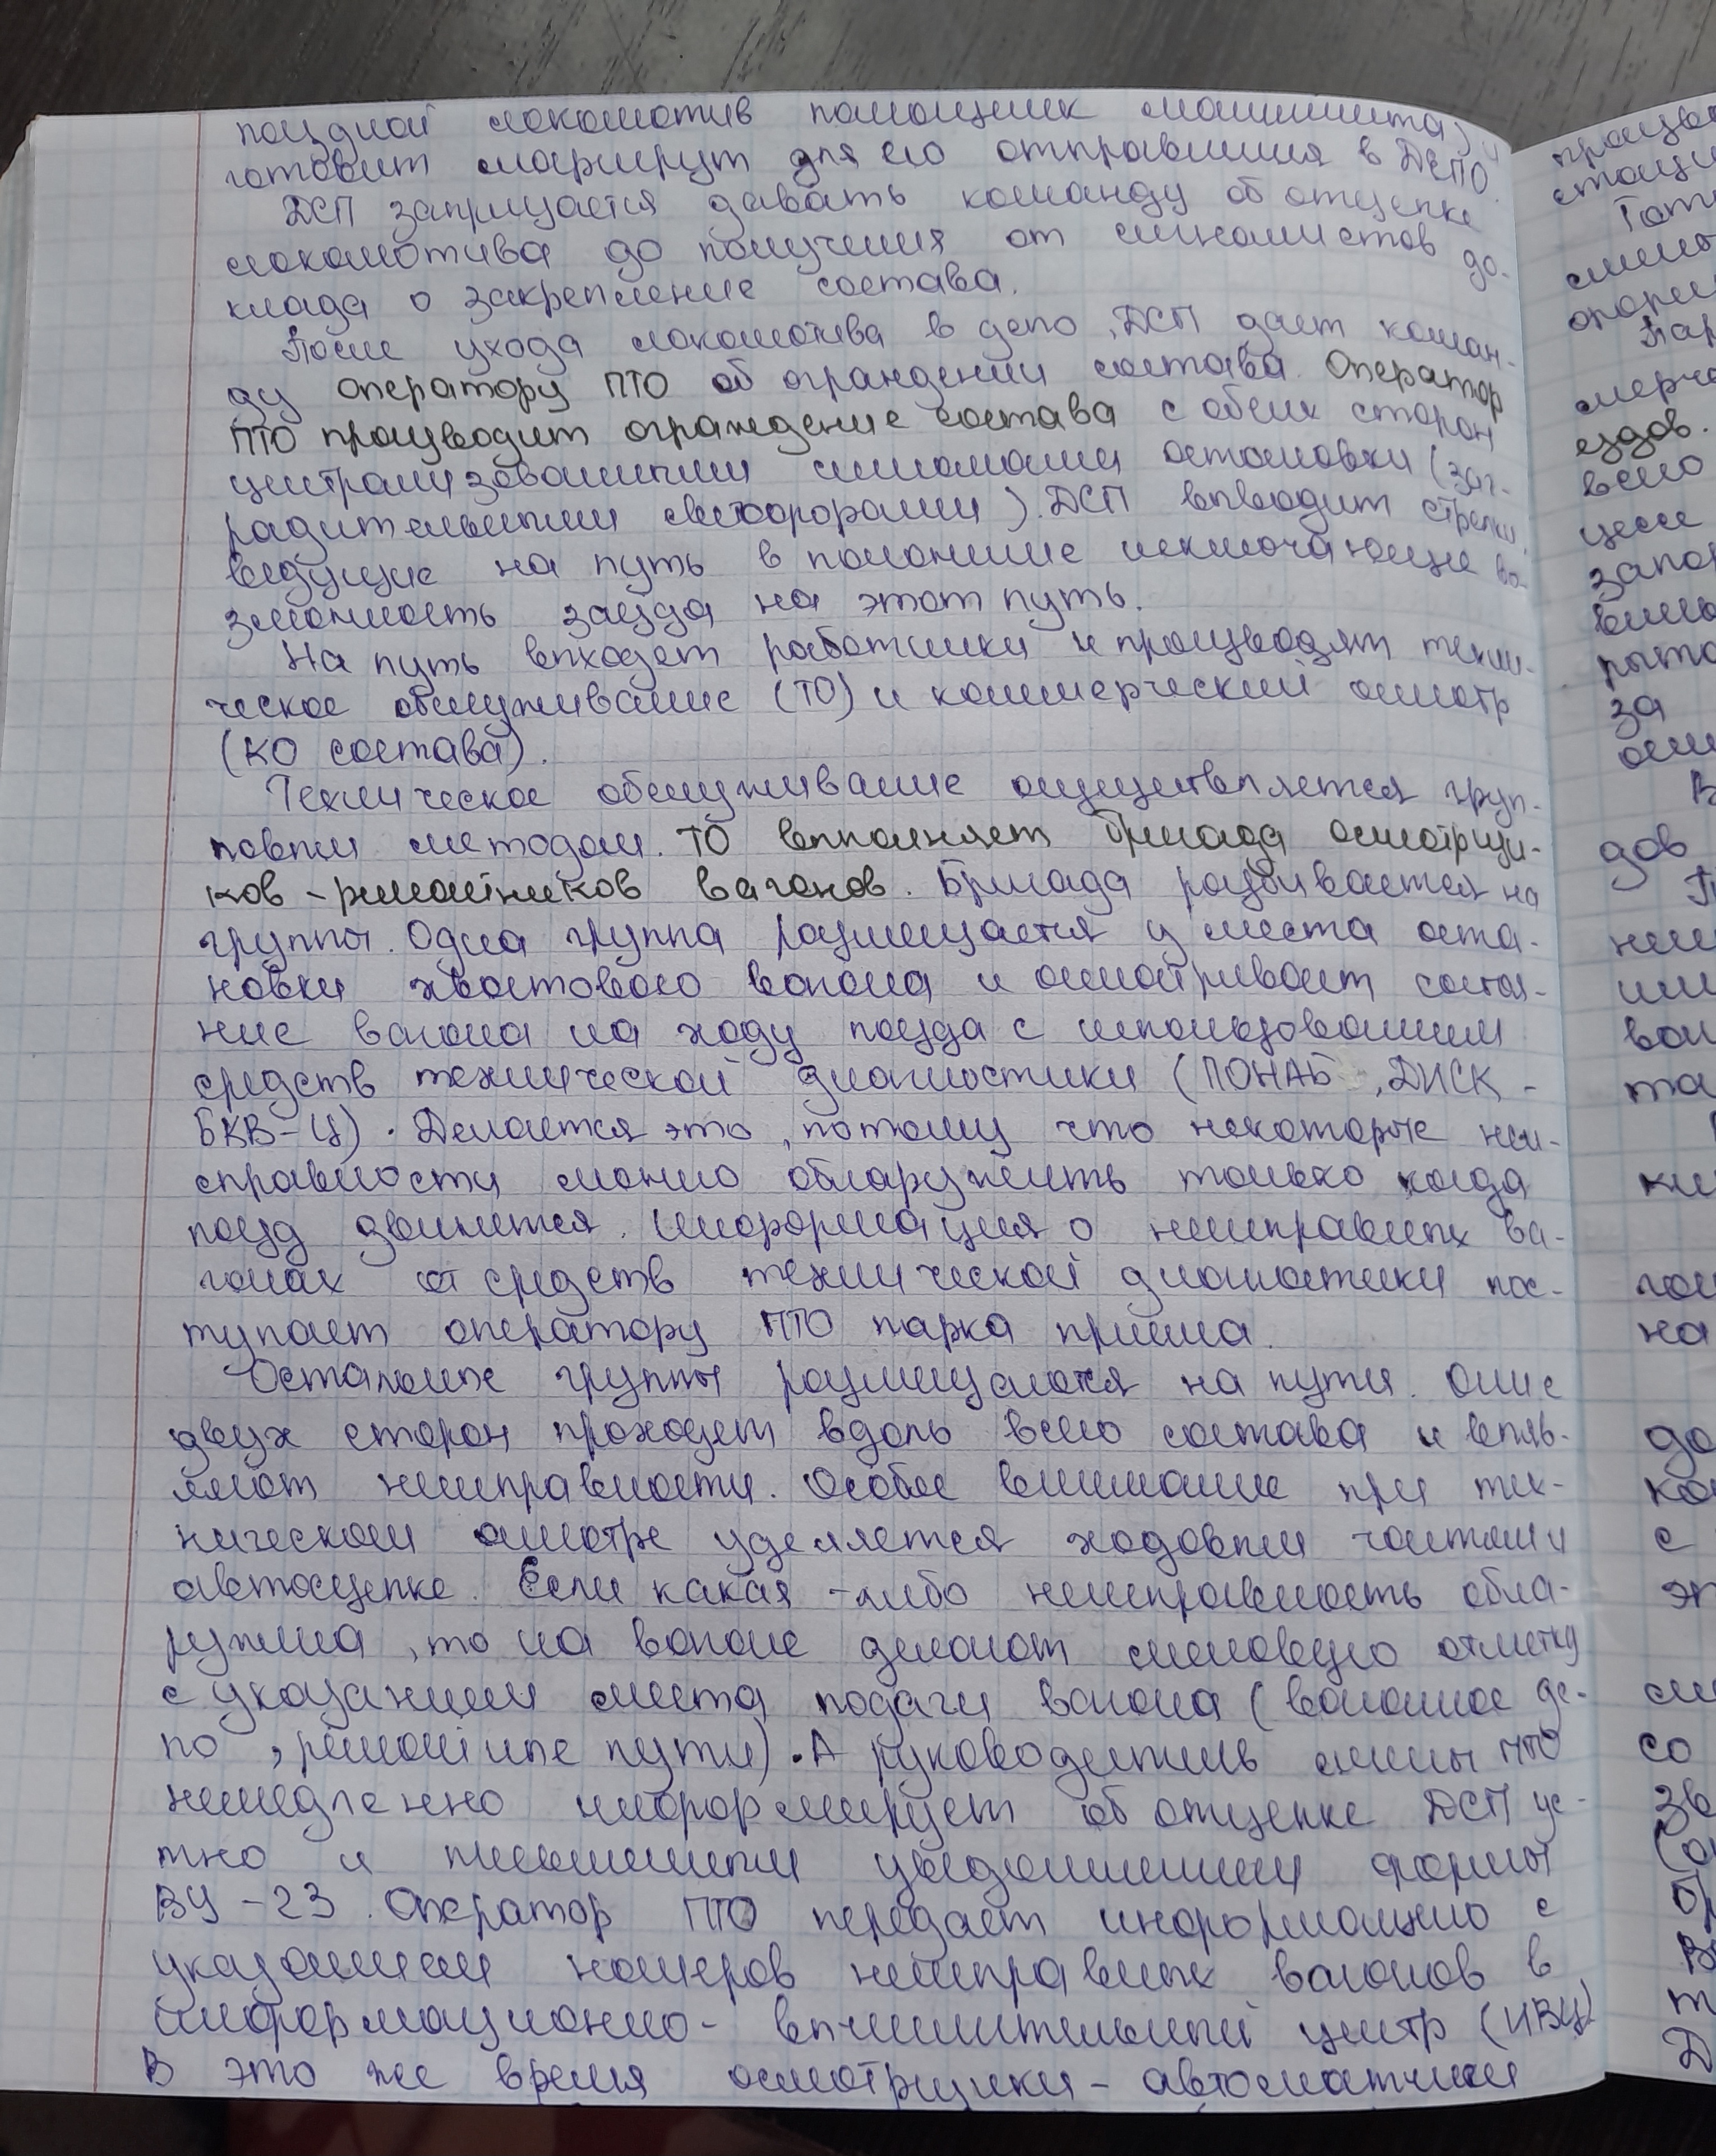 поездной локомотив помощник машиниста) и
готовит маршрут для его отправления в ДЕПО.
ДСП запрещается давать команду об отцепке
локомотива до получения от сигналистов до-
клада о закрепление состава.
После ухода локомотива в депо, ДСП дает коман-
ду оператору ПТО об ограждении состава. Оператор
ПТО производит ограждение состава с обеих сторон
централизованными сигналами остановки (заг-
радительными светофорами). ДСП выводит стрелки,
ведущие на путь в положение исключающие во-
зможность заезда на этот путь.
На путь выходят работники и производят техни-
ческое обслуживание (ТО) и коммерческий осмотр
(КО состава).
Техническое обслуживание осуществляется груп-
повым методом. ТО выполняет бригада осмотрщи-
ков - ремонтников вагонов. Бригада разбивается на
группы. Одна группа размещается у места оста-
новки хвостового вагона и осматривает состоя-
ние вагона на ходу поезда с использованием
средств технической диагностики (ПОНАБ, ДИСК -
БКВ-Ц). Делается это, потому что некоторые неи-
справности можно обнаружить только когда
поезд движется. Информация о неисправных ва-
гонах от средств технической диагностики пос-
тупает оператору ПТО парка приема.
Остальные группы размещаются на путях. Они с
двух сторон проходят вдоль всего состава и выяв-
ляют неисправности. Особое внимание при тех-
ническом осмотре уделяется ходовым частям и
автосцепке. Если какая-либо неисправность обна-
ружена, то на вагоне делают меловую отметку
с указанием места подачи вагона (вагонное де-
по, ремонтные пути). А руководитель смены ПТО
немедленно информирует об отцепке ДСП ус-
тно и письменным уведомлением формы
ВУ-23. Оператор ПТО передает информацию с
указанием номеров неисправных вагонов в
информационно-вычислительный центр (ИВЦ)
В это же время осмотрщики-автоматчики